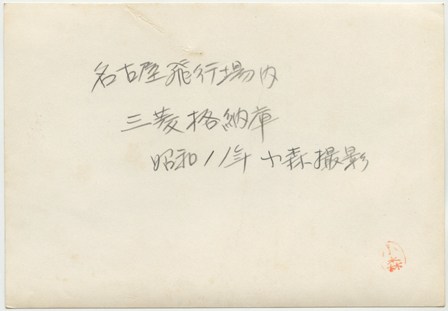 名古屋飛行場内
三菱格納庫
昭和11年 小森撮影